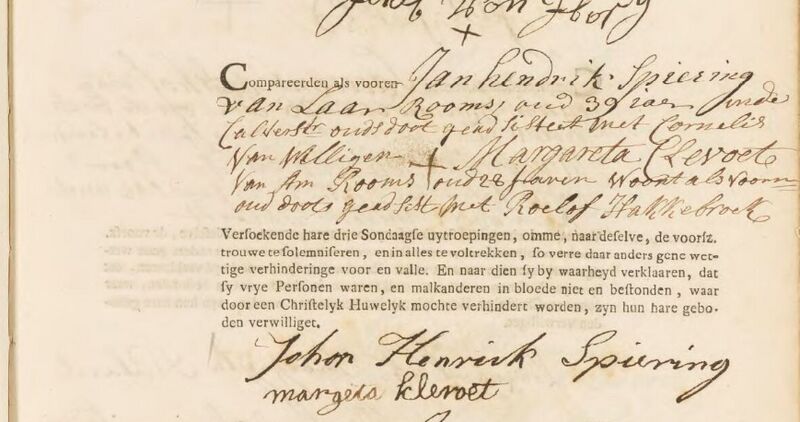 Compareerden als vooren Jan hendrik Spiering
van Laar Rooms, oud 39 iaer inde
Calverstr ouds doot geadsisteet met Cornelis
van Willigen + Margareta Clevoet
van Am Rooms oud 28 Jaren woont als vooren
oud doot geadsist met Roelof Hakkebroek
Versoekende hare drie Sondaagse uytroepingen, omme, naar deselve, de voorsz.
trouwe te solemniseren, en in alles te voltrekken, so verre daar anders gene wet-
tige verhinderinge voor en valle. En naar dien sy by waarheyd verklaaren, dat
sy vrye Personen waren, en malkanderen in bloede niet en bestonden, waar
door een Christelyk Huwelyk mochte verhindert worden, zyn hun hare gebo-
den verwilliget.
Johon Henrick Spiering
margeta klevoet